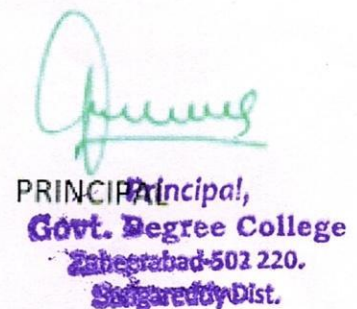 PRINCIPAL
Principal,
Govt. Degree College
Zaheerabad-502 220.
Sangareddy Dist.